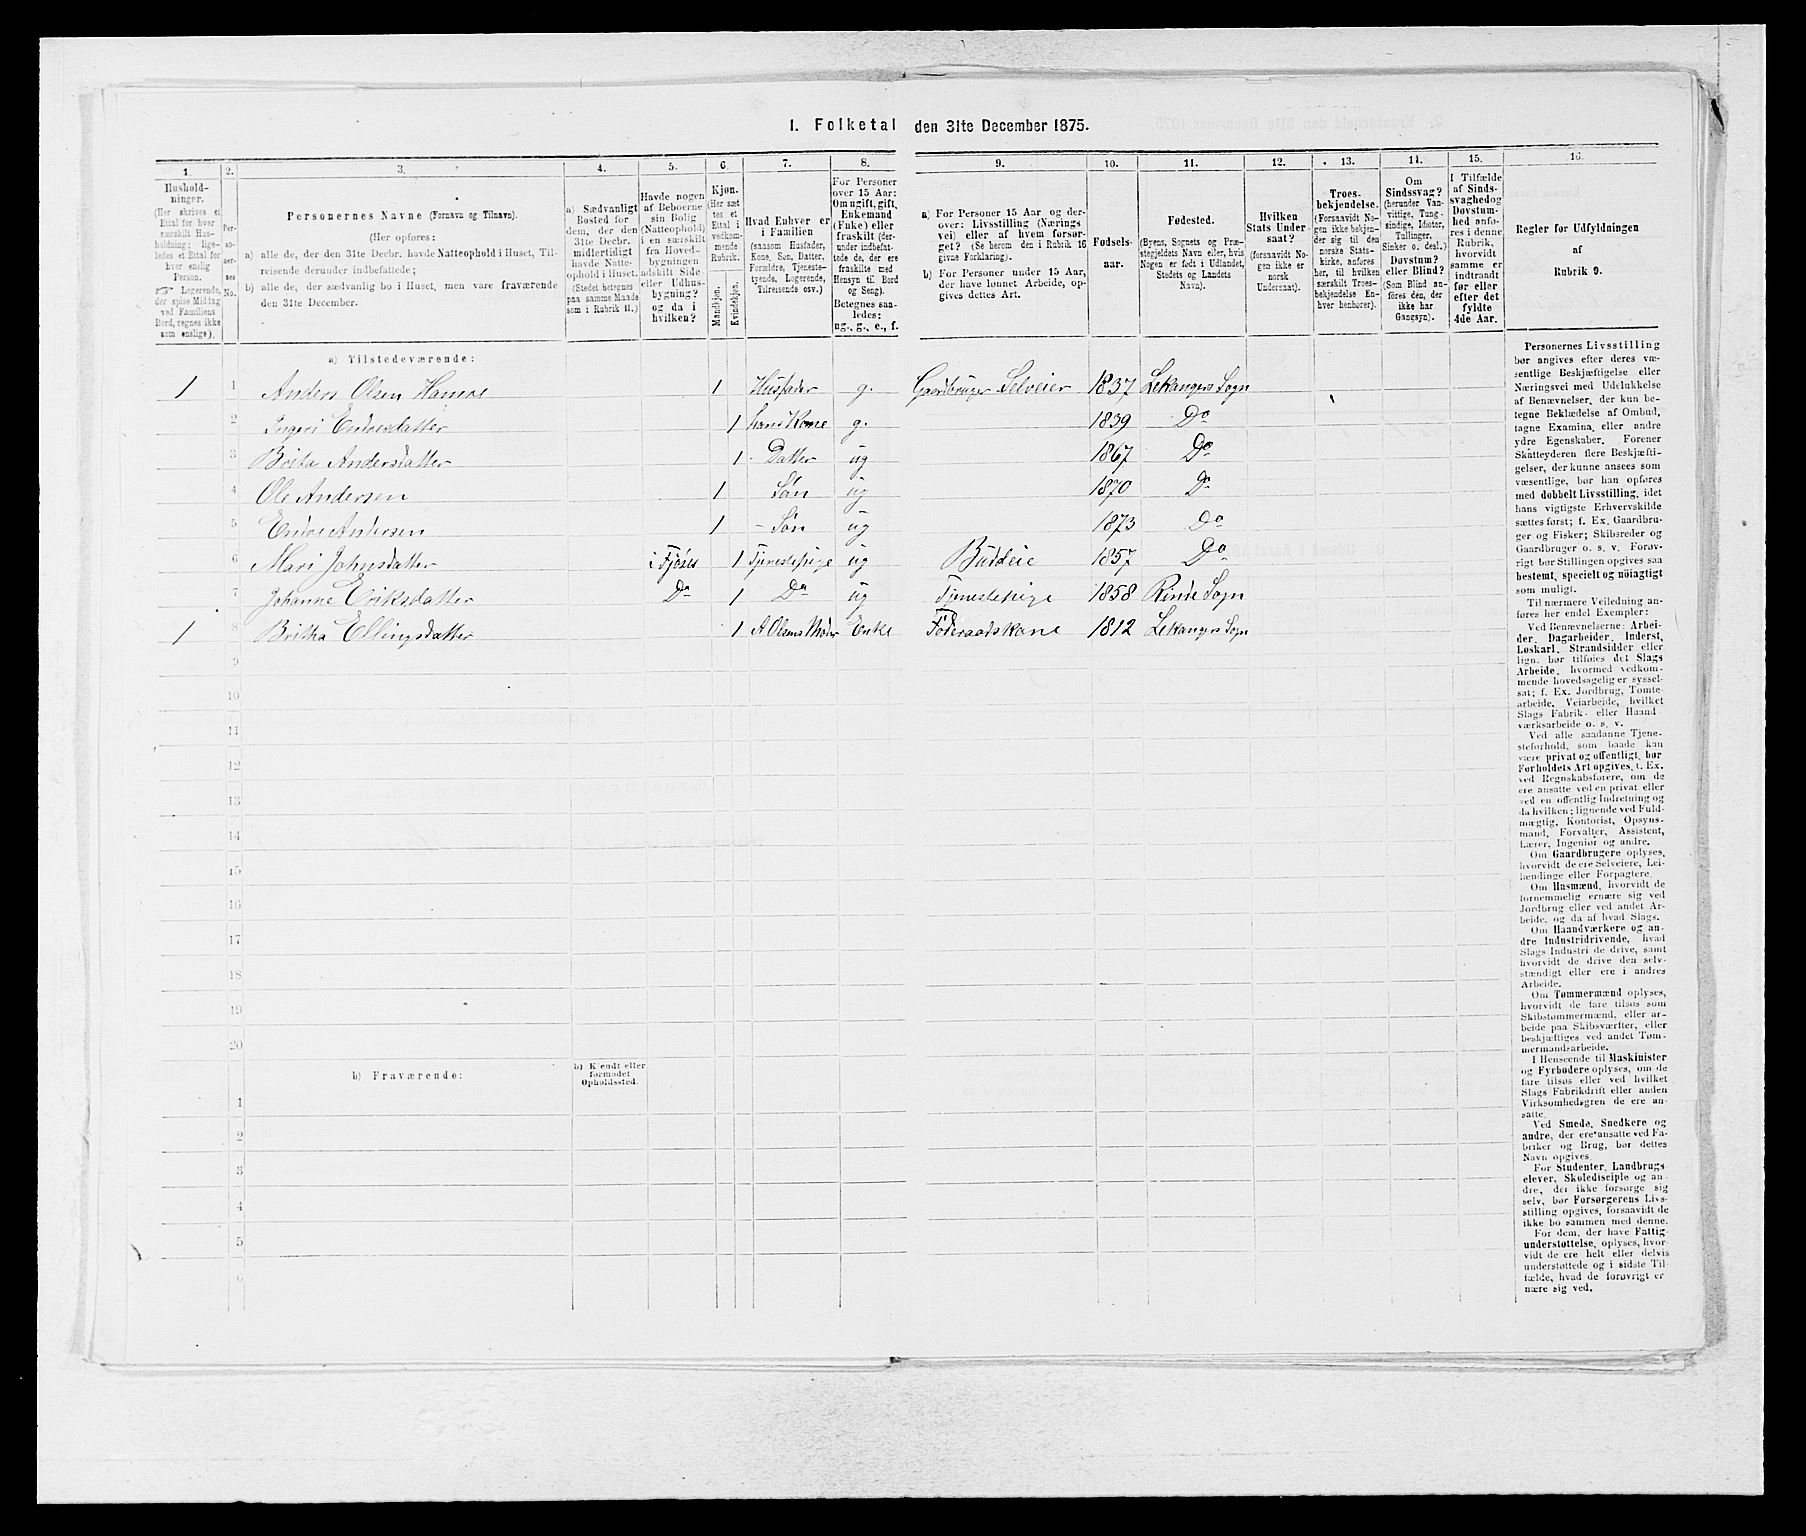 1. Folketal den 31te December 1875.
1. 2. 3. 4. 5. 6. 7. 8. 9. 10. 11. 12. 13. 14. 15. 16.
Hushold-
ninger.
(Her skrives et
Ettal for hver
særskilt Hus-
holdning; lige-
ledes et Ettal for
hver enslig
Person.
☞ Logerende,
der spise Middag
ved Familiens
Bord, regnes ikke
som enslige).
Per-
so-
ner-
nes
No.
Personernes Navne (Fornavn og Tilnavn).
(Her opføres:
a) alle de, der den 31te Decbr. havde Natteophold i Huset, Til-
reisende derunder indbefattede;
b) alle de, der sædvanlig bo i Huset, men vare fraværende
den 31te December.
a) Sædvanligt
Bosted for
dem, der den
31te Decbr.
midlertidigt
havde Natte-
ophold i Huset.
(Stedet betegnes
paa samme Maade
som i Rubrik 11.)
Havde nogen
af Beboerne
sin Bolig
(Natteophold)
i en særskilt
fra Hoved-
bygningen
adskilt Side
eller Udhus-
bygning?
og da i
hvilken?
Kjøn.
(Her sæt-
tes et
Ettal i
vedkom-
mende
Rubrik.
Mandkjøn.
Kvindekjøn.
Hvad Enhver er
i Familien
(saasom Husfader,
Kone, Søn, Datter,
Forældre, Tjeneste-
tyende, Logerende,
Tilreisende osv.)
For Personer
over 15 Aar:
Om ugift, gift,
Enkemand
(Enke) eller
fraskilt (der-
under indbefat-
tede de, der ere
fraskilte med
Hensyn til Bord
og Seng).
Betegnes saa-
ledes:
ug., g., e., f.
a) For Personer 15 Aar og der-
over: Livsstilling (Nærings
vei) eller af hvem forsør-
get? (Se herom den i Rubrik 16
givne Forklaring).
b) For Personer under 15 Aar,
der have lønnet Arbeide, op-
gives dettes Art.
Fødsels-
aar.
Fødested.
(Byens, Sognets og Præ-
stegjeldets Navn eller, hvis
Nogen er født i Udlandet,
Stedets og Landets
Navn).
Hvilken
Stats Under-
saat?
(forsaavidt No-
gen ikke er
norsk
Undersaat).
Troes-
bekjendelse.
(Forsaavidt No-
gen ikke bekjen-
der sig til den
norske Stats-
kirke, anføres
her, til hvilken
særskilt Troes-
bekjendelse En-
hver henhører).
Om
Sindssvag?
(herunder Van-
vittige, Tung-
sindige, Idioter,
Tullinger,
Sinker o. desl.)
Døvstum?
eller Blind?
(Som Blind an-
føres den, der
ikke har
Gangsyn).
I Tilfælde
af Sinds-
svaghed og
Døvstum-
hed anfø-
res i denne
Rubrik,
hvorvidt
samme er
indtraadt
før eller
efter det
fyldte
4de Aar.
Regler for Udfyldningen
af
Rubrik 9.
a) Tilstedeværende:
1 1 Anders Olsen Hamre 1 Husfader g. Gaardbruger Selveier 1837 Lekanger Sogn
2 Ingeri Endresdatter 1 hans Kone g. 1839 Do
3 Brita Andersdatter 1 Datter ug 1867 Do
4 Ole Andersen 1 Søn ug 1870 Do
5 Endre Andersen 1 Søn ug 1873 Do
6 Mari Johnsdatter i Fjøset 1 Tjenestepige ug Buddeie 1857 Do
7 Johanne Eriksdatter Do 1 Do ug Tjenestepige 1858 Rinde Sogn
1 8 Britha Ellingsdatter 1 A. Olsens Moder Enke Føderaadskone 1812 Lekanger Sogn
9
10
11
12
13
14
15
16
17
18
19
20
b) Fraværende:
b) Kjendt eller
formodet
Opholdssted.
1
2
3
4
5
6
Personernes Livsstilling
bør angives efter deres væ-
sentlige Beskjæftigelse eller
Næringsvei med Udelukkelse
af Benævnelser, der kun be-
tegne Beklædelse af Ombud,
tagne Examina, eller andre
ydre Egenskaber. Forener
Skatteyderen flere Beskjæfti-
gelser, der kunne ansees som
væsentlige, bør han opføres
med dobbelt Livsstilling, idet
hans vigtigste Erhvervskilde
sættes først; f. Ex. Gaardbru-
ger og Fisker; Skibsreder og
Gaardbruger o. s. v. Forøv-
rigt bør Stillingen opgives saa
bestemt, specielt og nøiagtigt
som muligt.
Til nærmere Veiledning an-
føres her endel Exempler:
Ved Benævnelserne: Arbei-
der, Dagarbeider, Inderst,
Løskarl, Strandsidder eller
lign. bør tilføies det Slags
Arbeide, hvormed vedkom-
mende hovedsagelig er syssel-
sat; f. Ex. Jordbrug, Tomte-
arbeide, Veiarbeide, hvilket
Slags Fabrik- eller Haand-
værksarbeide o. s. v.
Ved alle saadanne Tjene-
steforhold, som baade kan
være privat og offentligt, bør
Forholdets Art opgives, t. Ex.
ved Regnskabsførere, om de
ere ansatte ved en privat eller
ved en offentlig Indretning og
da hvilken; lignende ved Fuld-
mægtig, Kontorist, Opsyns-
mand, Forvalter, Assistent,
Lærer, Ingeniør og andre.
Om Gaardbrugere oplyses,
hvorvidt de ere Selveiere, Lei-
lændinge eller Forpagtere.
Om Husmænd, hvorvidt de
fornemmelig ernære sig ved
Jordbrug eller ved andet Ar-
beide, og da af hvad Slags.
Om Haandværkere og an-
dre Industridrivende, hvad
Slags Industri de drive, samt
hvorvidt de drive den selv-
stændigt eller ere i andres
Arbeide.
Om Tømmermænd oplyses,
hvorvidt de fare tilsøs som
Skibstømmermænd, eller ar-
beide paa Skibsværfter, eller
beskjæftiges ved andet Tøm-
mermandsarbeide.
I Henseende til Maskinister
og Fyrbødere oplyses, om de
fare tilsøs eller ved hvilket
Slags Fabrikdrift eller anden
Virksomhedsgren de ere an-
satte.
Ved Smede, Snedkere og
andre, der ere ansatte ved Fa-
briker og Brug, bør dettes
Navn opgives.
For Studenter, Landbrugs-
elever, Skoledisciple og an-
dre, der ikke forsørge sig
selv, bør Forsørgerens Livs-
stilling opgives, forsaavidt de
ikke bo sammen med denne.
For dem, der have Fattig-
understøttelse, oplyses, hvor-
vidt de ere helt eller delvis
understøttede og i sidste Til-
fælde, hvad de forøvrigt er-
nære sig ved.